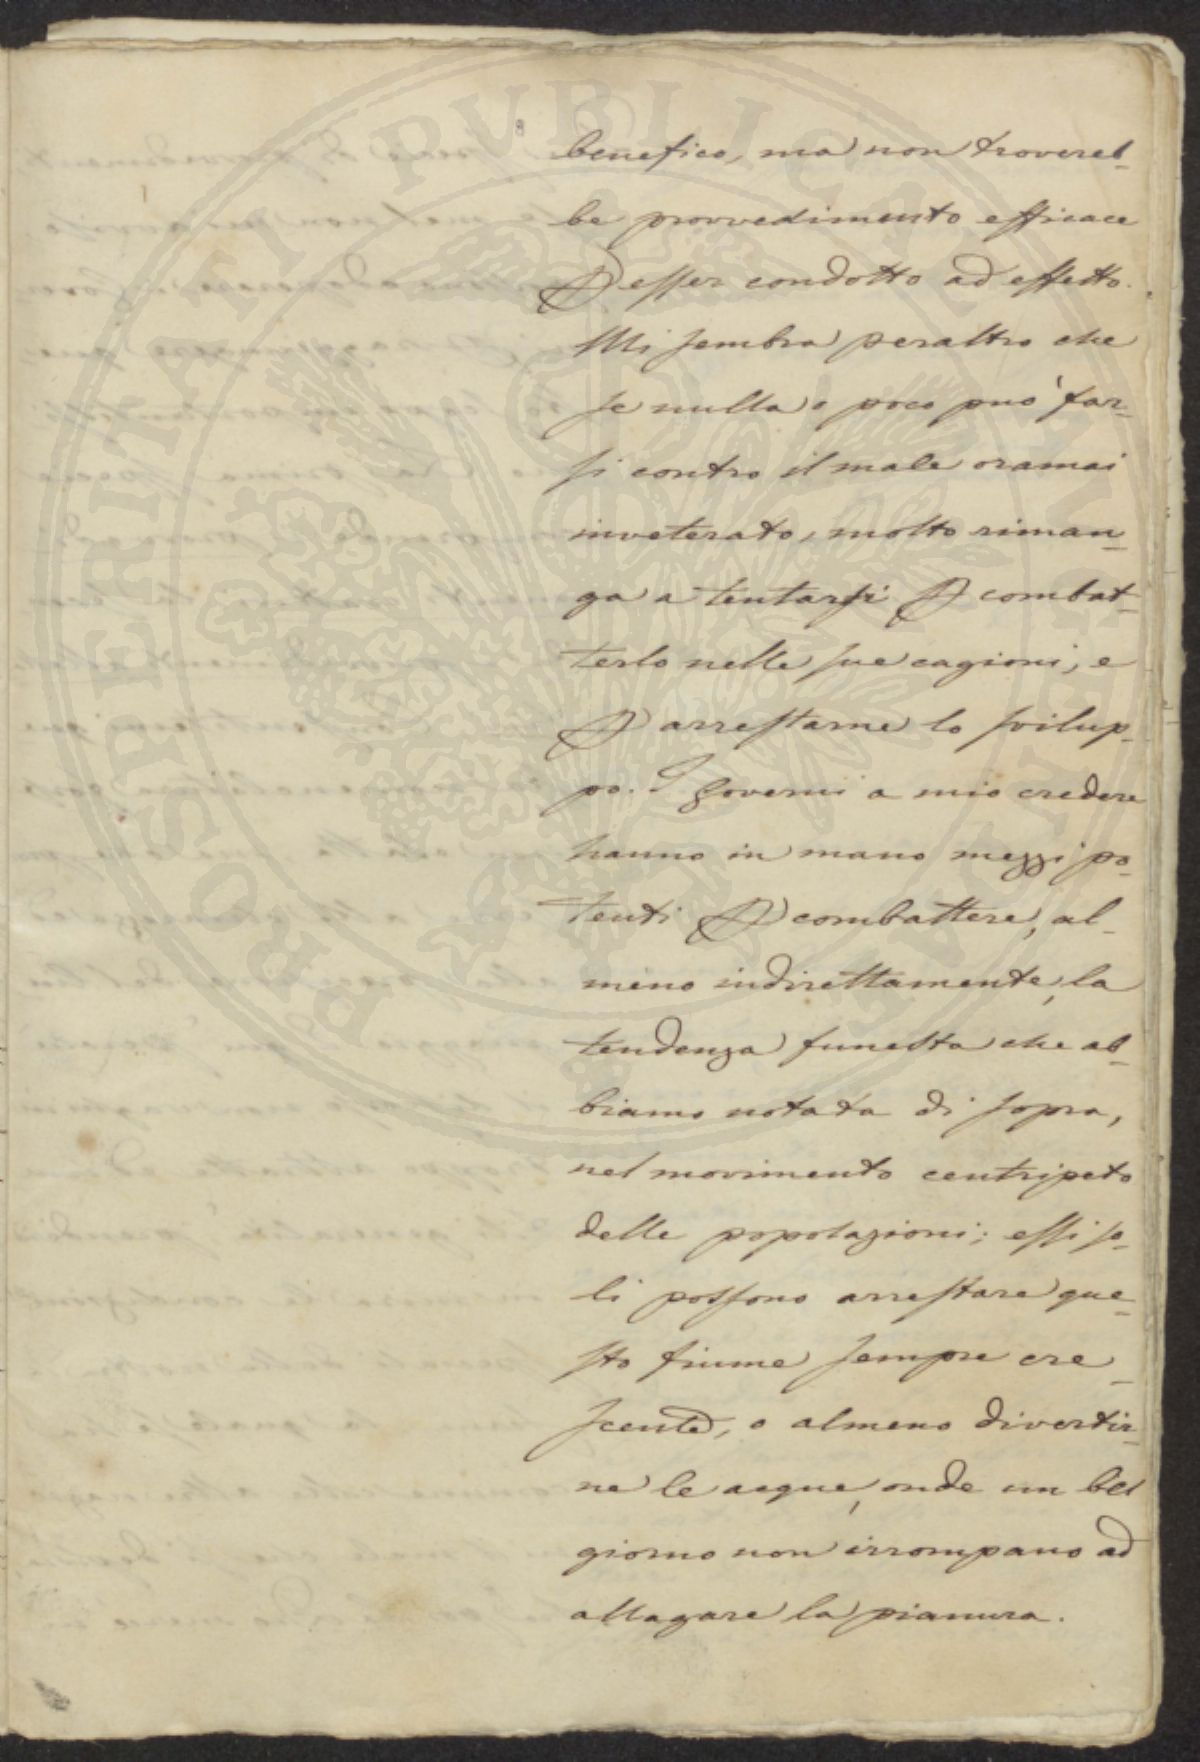 benefico, ma non trovereb-
be provvedimento efficace
P esser condotto ad effetto.
Mi sembra peraltro che
se nulla o poco può far-
si contro il male oramai
inveterato, molto riman-
ga a tentarsi P combat-
terlo nelle sue cagioni, e
P arrestarne lo svilup-
po. I Governi a mio credere
hanno in mano mezzi po-
tenti P combattere, al-
meno indirettamente, la
tendenza funesta che ab-
biamo notata di sopra,
nel movimento centripeto
delle popolazioni; essi so-
li possono arrestare que-
sto fiume sempre cre-
scente, o almeno divertir-
ne le acque, onde un bel
giorno non irrompano ad
allagare la pianura.
PROSPERITATI PVBLICAE AVGENDAE